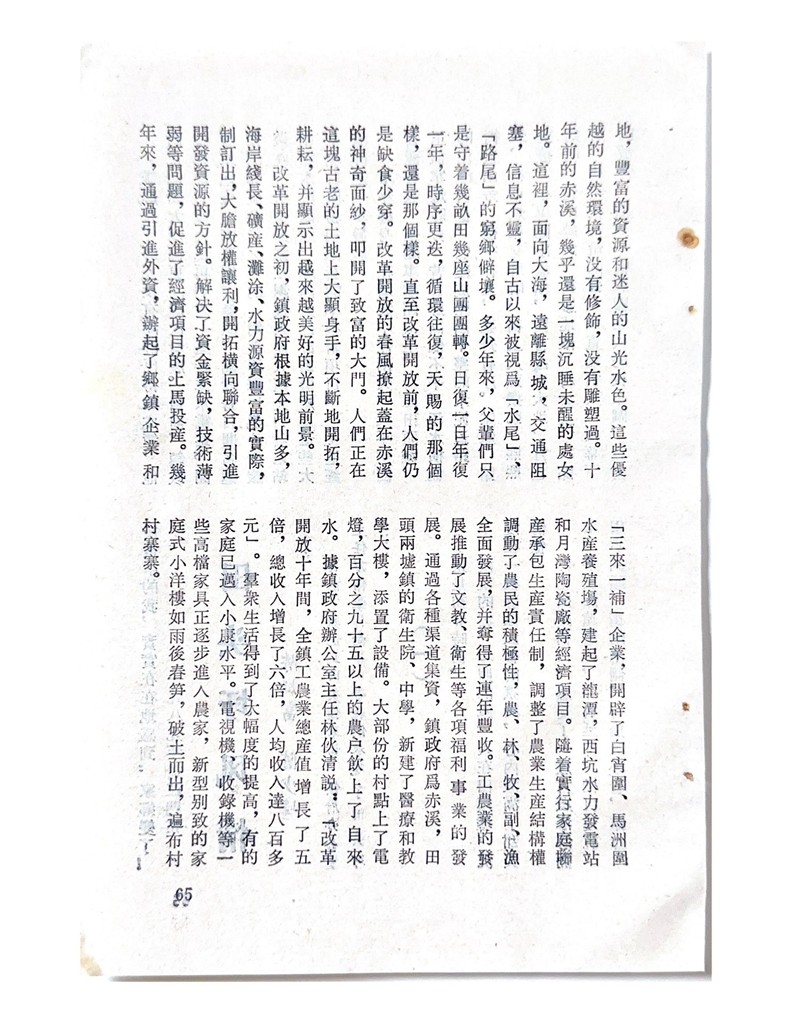 地，豐富的資源和迷人的山光水色。這些優
越的自然環境，没有修飾，没有雕塑過。十
年前的赤溪，幾乎還是一塊沉睡未醒的處女
地。這裡，面向大海，遠離縣城，交通阻
塞，信息不靈，自古以來被視爲「水尾」、
「路尾」的窮鄉僻壤。多少年來，父輩們只
是守着幾畝田幾座山團團轉。日復一日年復
一年，時序更迭，循環往復，天賜的那個
樣，還是那個樣。直至改革開放前，人們仍
是缺食少穿。改革開放的春風撩起蓋在赤溪
的神奇面紗，叩開了致富的大門。人們正在
這塊古老的土地上大顯身手，不斷地開拓，
耕耘，并顯示出越來越美好的光明前景。
改革開放之初，鎮政府根據本地山多，
海岸綫長、礦産、灘涂、水力源資豐富的實際，
制訂出，大膽放權讓利，開拓橫向聯合，引進
開發資源的方針。解决了資金緊缺，技術薄
弱等問題，促進了經濟項目的上馬投産。幾
年來，通過引進外資，辦起了鄉鎮企業和
「三來一補」企業，開辟了白宵圍、馬洲圍
水産養殖場，建起了龍潭，西坑水力發電站
和月灣陶瓷廠等經濟項目。隨着實行家庭聯
産承包生産責任制，調整了農業生産結構權
調動了農民的積極性，農、林、牧、副、漁
全面發展，并奪得了連年豐收。工農業的發
展推動了文教、衛生等各項福利事業的發
展。通過各種渠道集資，鎮政府爲赤溪，田
頭兩墟鎮的衛生院、中學，新建了醫療和教
學大樓，添置了設備。大部份的村點上了電
燈，百分之九十五以上的農户飲上了自來
水。據鎮政府辦公室主任林伙清説：「改革
開放十年間，全鎮工農業總産值增長了五
倍，總收入增長了六倍，人均收入達八百多
元」。羣衆生活得到了大幅度的提高，有的
家庭已邁入小康水平。電視機、收錄機等一
些高檔家具正逐步進入農家，新型别致的家
庭式小洋樓如雨後春笋，破土而出，遍布村
村寨寨。
65